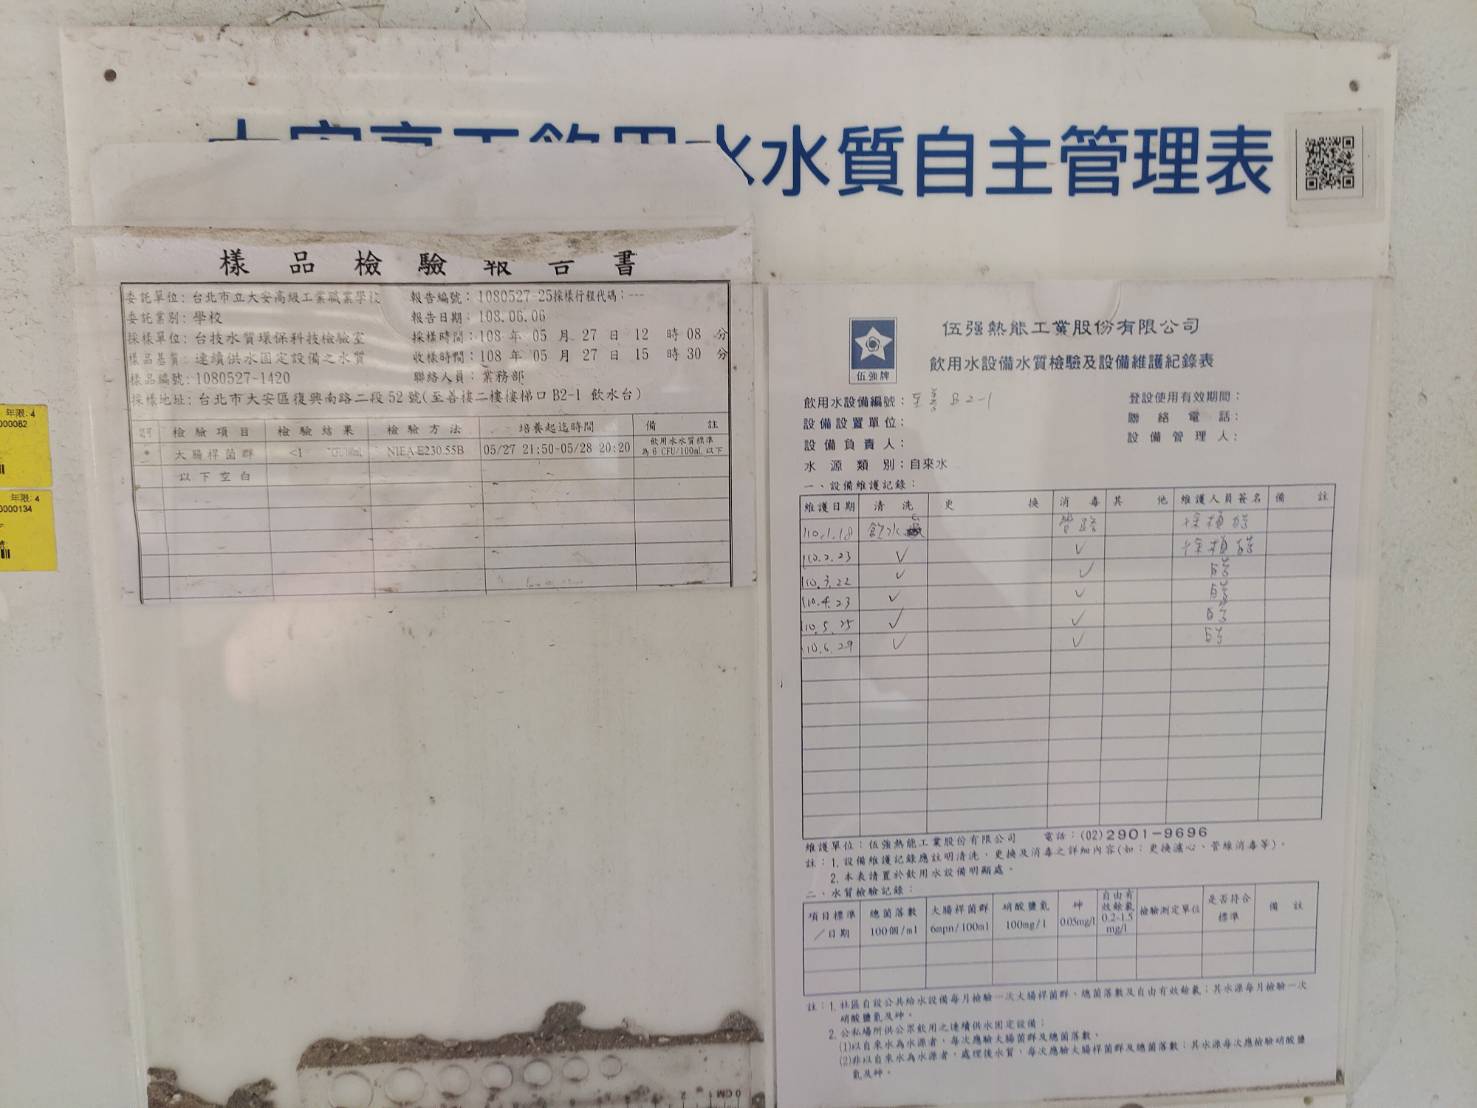 大安高工飲用水水質自主管理表
樣品檢驗報告書
委託單位：台北市立大安高級工業職業學校 報告編號：1080527-25採樣行程代碼：---
委託業別：學校 報告日期：108.06.06
採樣單位：台技水質環保科技檢驗室 採樣時間：108 年 05 月 27 日 12 時 08 分
樣品基質：連續供水固定設備之水質 收樣時間：108 年 05 月 27 日 15 時 30 分
樣品編號：1080527-1420 聯絡人員：業務部
採樣地址：台北市大安區復興南路二段 52 號(至善樓二樓樓梯口 B2-1 飲水台)
檢驗項目 檢驗結果 檢驗方法 培養起迄時間 備註
* 大腸桿菌群 <1 NIEA E230.55B 05/27 21:50-05/28 20:20 飲用水水質標準
為 6 CFU/100mL 以下
以下空白
伍強牌
伍强熱能工業股份有限公司
飲用水設備水質檢驗及設備維護紀錄表
飲用水設備編號：至善 B2-1 登設使用有效期間：
設備設置單位： 聯絡電話：
設備負責人： 設備管理人：
水源類別：自來水
一、設備維護記錄：
維護日期 清洗 更換 消毒 其他 維護人員簽名 備註
110.1.18 飲水 管路
110.2.23 ✓ ✓
110.3.22 ✓ ✓
110.4.23 ✓ ✓
110.5.25 ✓ ✓
110.6.29 ✓ ✓
維護單位：伍强熱能工業股份有限公司 電話：(02)2901-9696
註：1.設備維護記錄應註明清洗、更換及消毒之詳細內容(如：更換濾心、管線消毒等)。
2.本表請置於飲用水設備明顯處。
二、水質檢驗記錄：
項目標準／日期 總菌落數 100個/ml 大腸桿菌群 6mpn/100ml 硝酸鹽氮 100mg/l 砷 0.05mg/l 自由有效餘氯 0.2-1.5 mg/l 檢驗測定單位 是否符合標準 備註
註：1.社區自設公共給水設備每月檢驗一次大腸桿菌群、總菌落數及自由有效餘氯；其水源每月檢驗一次
硝酸鹽氮及砷。
2.公私場所供公眾飲用之連續供水固定設備：
(1)以自來水為水源者，每次應驗大腸菌群及總菌落數。
(2)非以自來水為水源者，處理後水質，每次應驗大腸桿菌群及總菌落數；其水源每次應檢驗硝酸鹽
氮及砷。
年限:4
000082
年限:4
0000134
0 CM 1 2